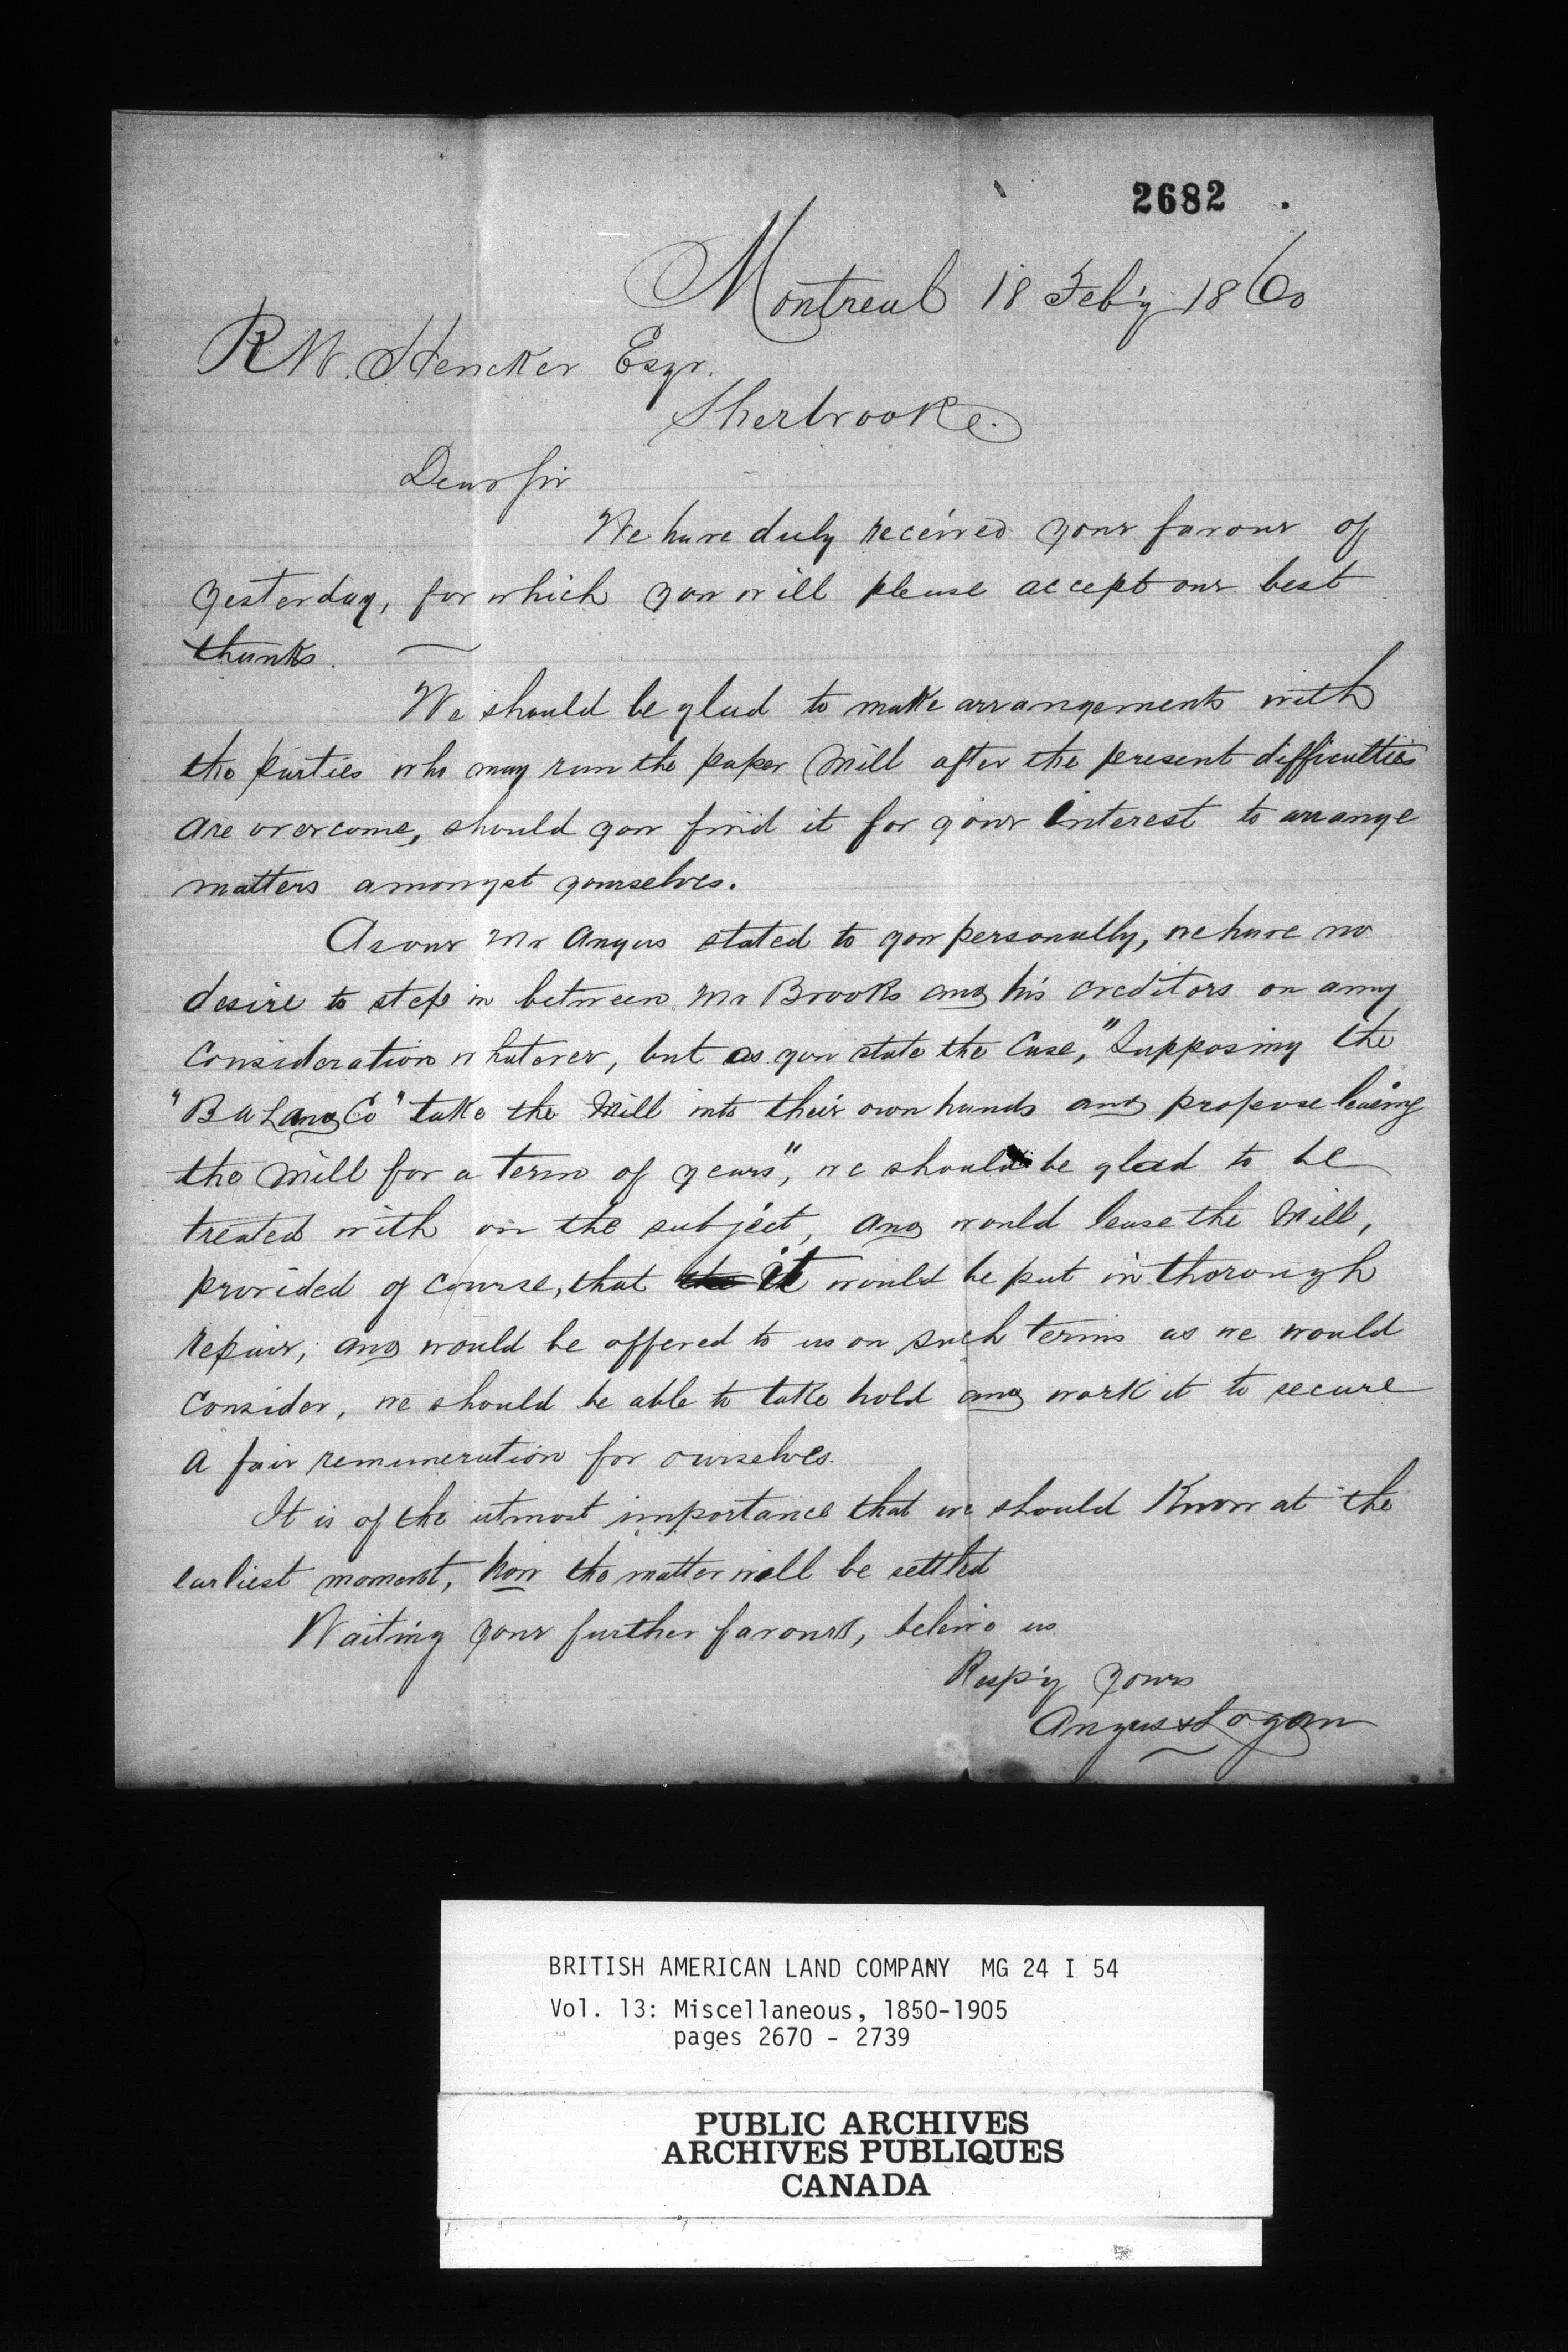 2682
Montreal 18 Feb'y 1860
R W. Hencker Esqr.
Sherbrooke.
Dear Sir
We have duly received your favour of
yesterday, for which you will please accept our best
thanks. —
We should be glad to make arrangements with
the parties who may run the paper Mill after the present difficulties
are overcome, should you find it for your interest to arrange
matters amongst yourselves.
As our Mr Angus stated to you personally, we have no
desire to step in between Mr Brooks and his creditors on any
consideration whatever, but as you state the Case, "Supposing the
"B A Land Co" take the Mill into their own hands and propose leasing
the Mill for a term of years", we should be glad to be
treated with on the subject, and would lease the Mill,
provided of course, that the it would be put in thorough
repair; and would be offered to us on such terms as we would
Consider, we should be able to take hold and work it to secure
a fair remuneration for ourselves.
It is of the utmost importance that we should Know at the
earliest moment, how the matter will be settled
Waiting your further favours, believe us
Resp'y Yours
Angus & Logan
BRITISH AMERICAN LAND COMPANY MG 24 I 54
Vol. 13: Miscellaneous, 1850-1905
pages 2670 - 2739
PUBLIC ARCHIVES
ARCHIVES PUBLIQUES
CANADA